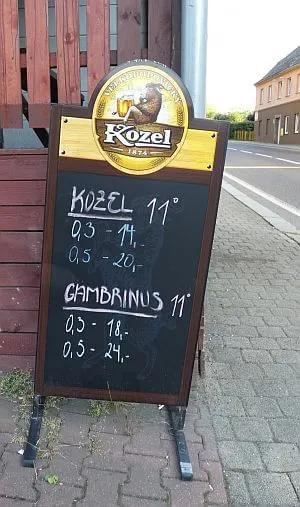 VELKOPOPOVICKÝ
Kozel
1874
KOZEL 11°
0,3 - 14,-
0,5 - 20,-
GAMBRINUS 11°
0,3 - 18,-
0,5 - 24,-